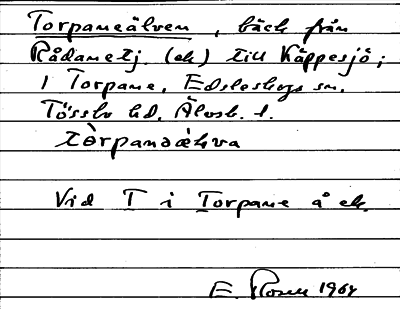 Torpaneälven, bäck från
Rådanetj. (ek) till Käppesjö;
i Torpane, Edsleskogs sn.
Tössbo hd, Älvsb. l.
tòrpanaäLva
Vid T i Torpane å ek.
E. Rosell 1964